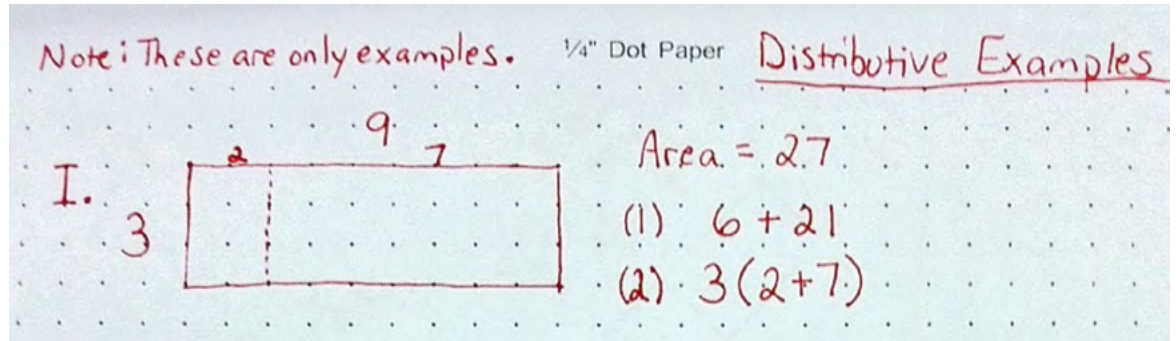 Note: These are only examples. 1/4" Dot Paper Distributive Examples
9
2 7
I.
3
Area = 27
(1) 6 + 21
(2) 3(2+7)